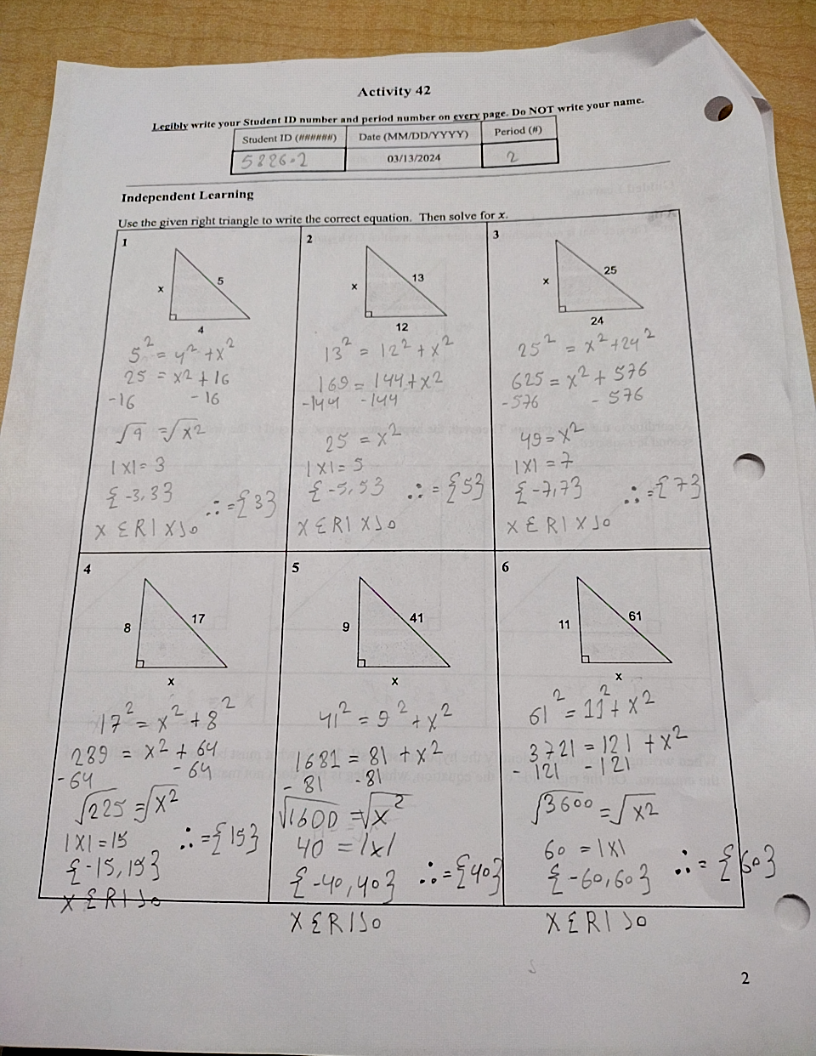 Activity 42
Legibly write your Student ID number and period number on every page. Do NOT write your name.
Student ID (######) Date (MM/DD/YYYY) Period (#)
03/13/2024 2
Independent Learning
Use the given right triangle to write the correct equation. Then solve for x.
1
x 5
4
5² = 4² + x²
25 = x² + 16
-16 -16
√9 = √x²
|x| = 3
{-3,3} ∴ = {3}
X ƐR| X>0
2
x 13
12
13² = 12² + x²
169 = 144 + x²
-144 -144
25 = x²
|x| = 5
{-5,5} ∴ = {5}
X ƐR| X>0
3
x 25
24
25² = x² + 24²
625 = x² + 576
-576 -576
49 = x²
|x| = 7
{-7,7} ∴ = {7}
X ƐR| X>0
4
8 17
x
17² = x² + 8²
289 = x² + 64
-64 -64
√225 = √x²
|x| = 15 ∴ = {15}
{-15,15}
X ƐR| >0
5
9 41
x
41² = 9² + x²
1681 = 81 + x²
-81 -81
√1600 = √x²
40 = |x|
{-40,40} ∴ = {40}
X ƐR| >0
6
11 61
x
61² = 11² + x²
3721 = 121 + x²
-121 -121
√3600 = √x²
60 = |x|
{-60,60} ∴ = {60}
X ƐR| >0
2